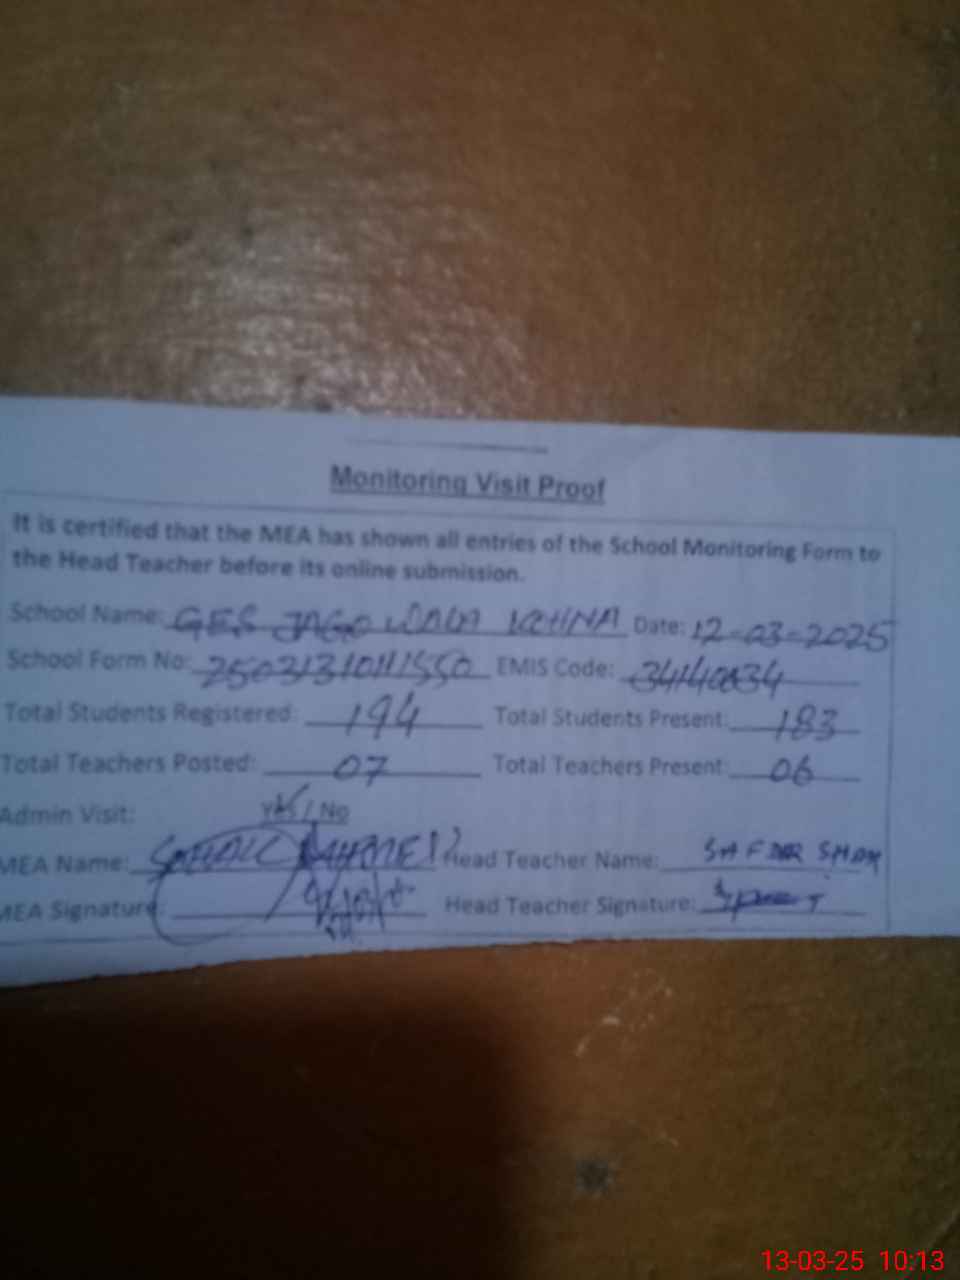 Monitoring Visit Proof
It is certified that the MEA has shown all entries of the School Monitoring Form to
the Head Teacher before its online submission.
School Name: GES JAGO WALA KHNA Date: 12-03-2025
School Form No: EMIS Code:
Total Students Registered: 194 Total Students Present: 183
Total Teachers Posted: 07 Total Teachers Present: 06
Admin Visit: Yes / No
MEA Name: Head Teacher Name: SAFDAR SHAH
MEA Signature: Head Teacher Signature:
13-03-25 10:13